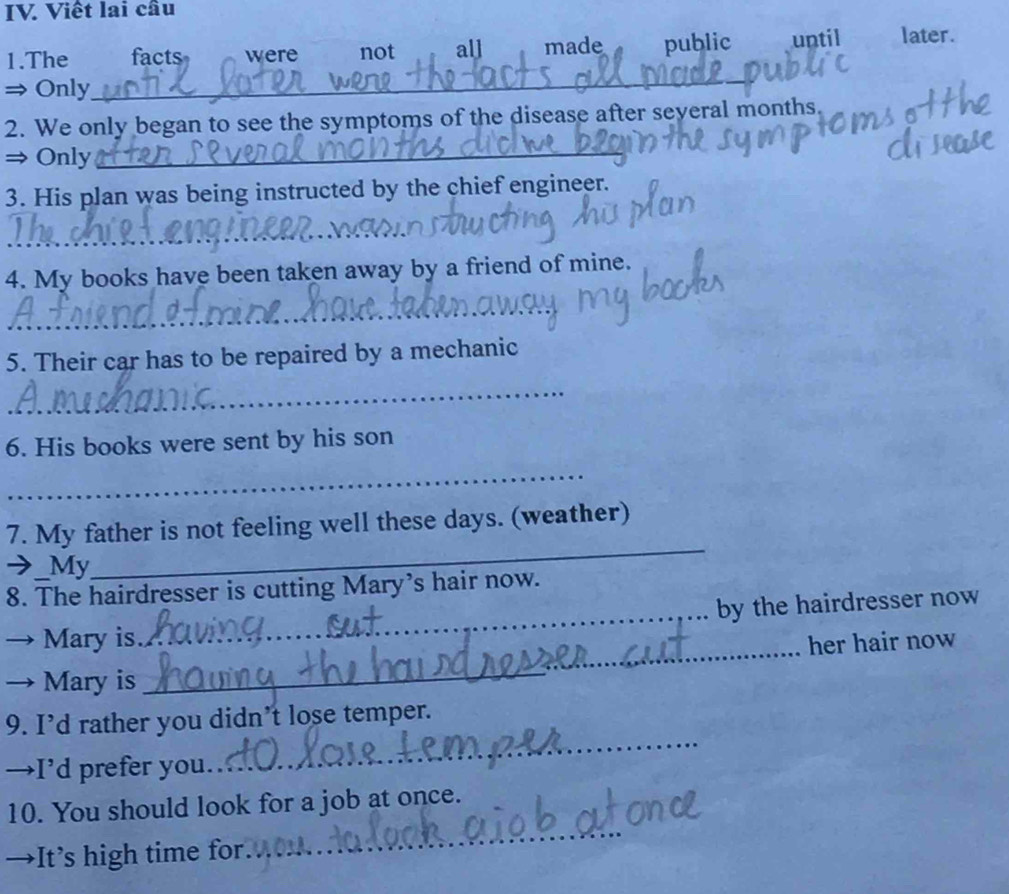 IV. Viết lai câu
1.The facts were not all made public until later.
⇒ Only until later were the facts all made public
2. We only began to see the symptoms of the disease after several months.
⇒ Only after several months did we begin the symptoms of the disease
3. His plan was being instructed by the chief engineer.
The chief engineer was instructing his plan
4. My books have been taken away by a friend of mine.
A friend of mine have taken away my books
5. Their car has to be repaired by a mechanic
A mechanic
6. His books were sent by his son
7. My father is not feeling well these days. (weather)
→ My
8. The hairdresser is cutting Mary's hair now.
→ Mary is having cut by the hairdresser now
→ Mary is having the hairdresser cut her hair now
9. I'd rather you didn't lose temper.
→I'd prefer you to lose temper
10. You should look for a job at once.
→It's high time for you to look a job at once